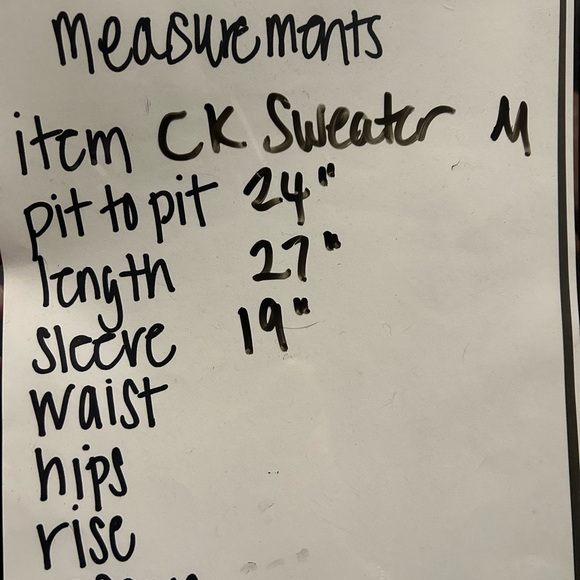 measurements
item CK Sweater M
pit to pit 24"
length 27"
sleeve 19"
waist
hips
rise